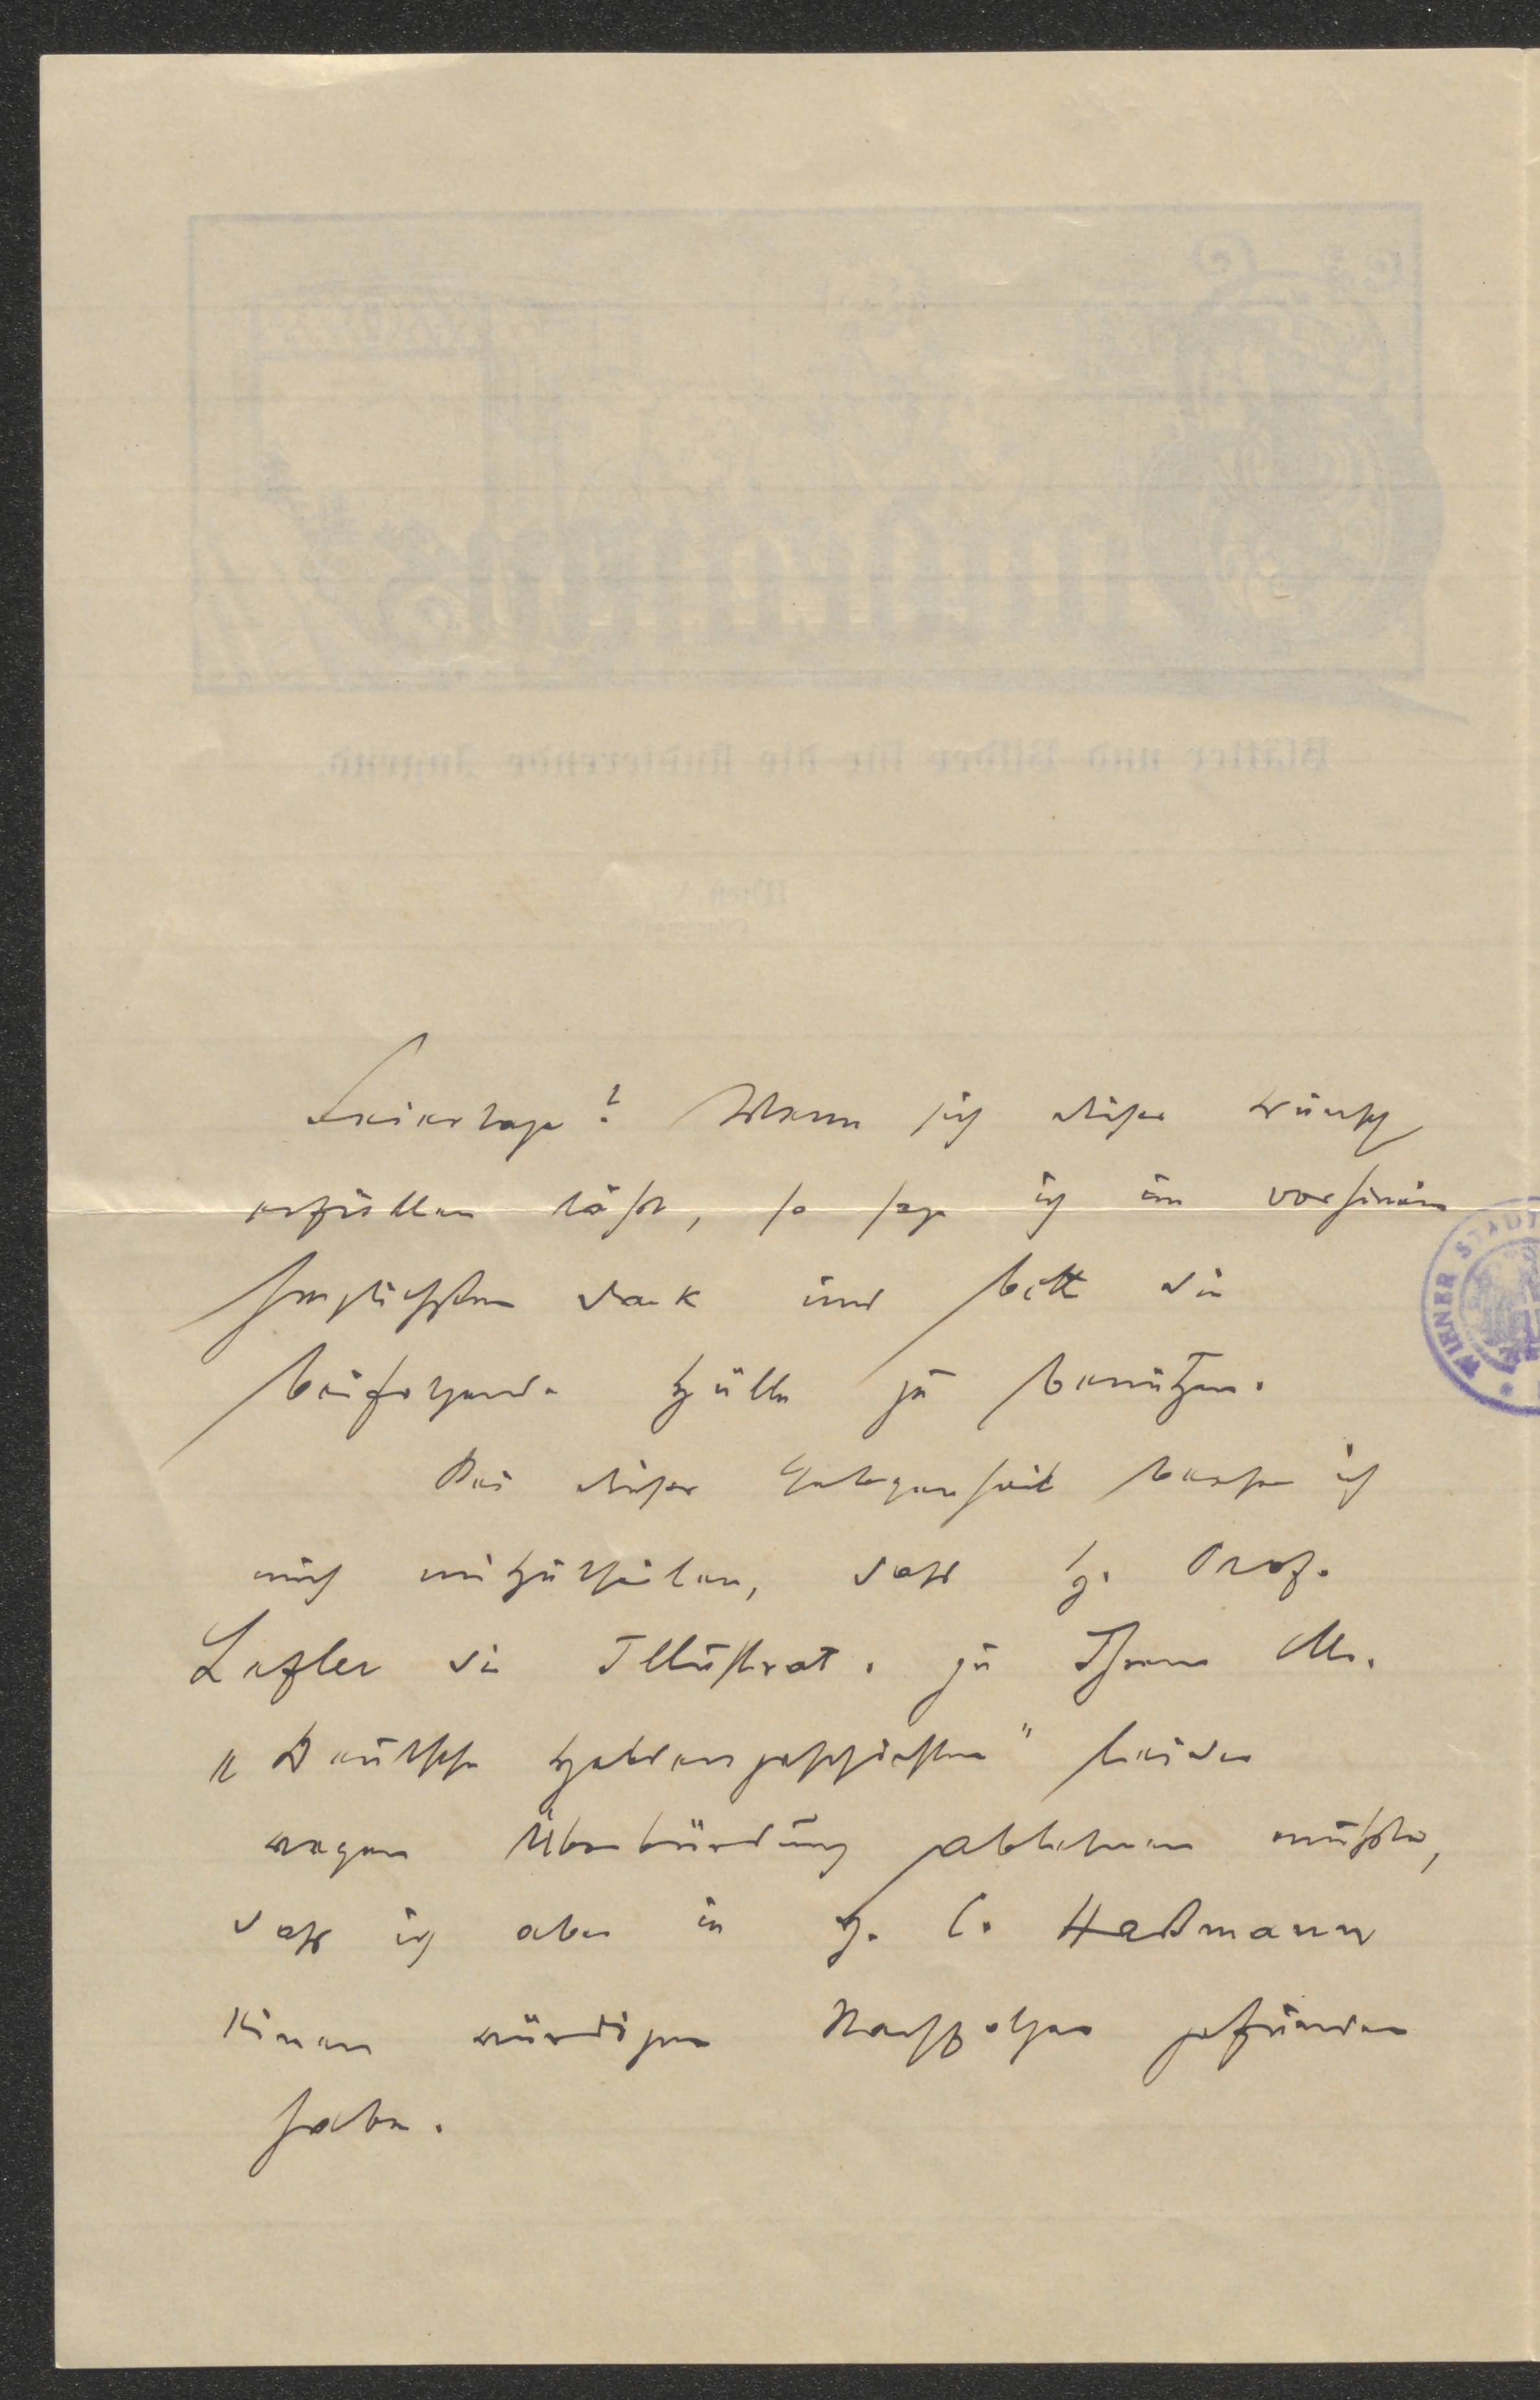 Feiertage? Wenn sich dieser Wunsch
erfüllen läßt, so sage ich im vorhinein
herzlichsten Dank und bitte die
beifolgende Hülle zu benützen.
Bei dieser Gelegenheit beehre ich
mich mitzutheilen, daß H. Prof.
Lefler die Illustrat. zu Ihrem Ms.
"Deutsche Heldengeschichten" leider
wegen Überbürdung ablehnen mußte,
daß ich aber in H. C. Haßmann
einen würdigen Nachfolger gefunden
habe.
Blätter und Bilder für die studierende Jugend.
Wien
WIENER STADT